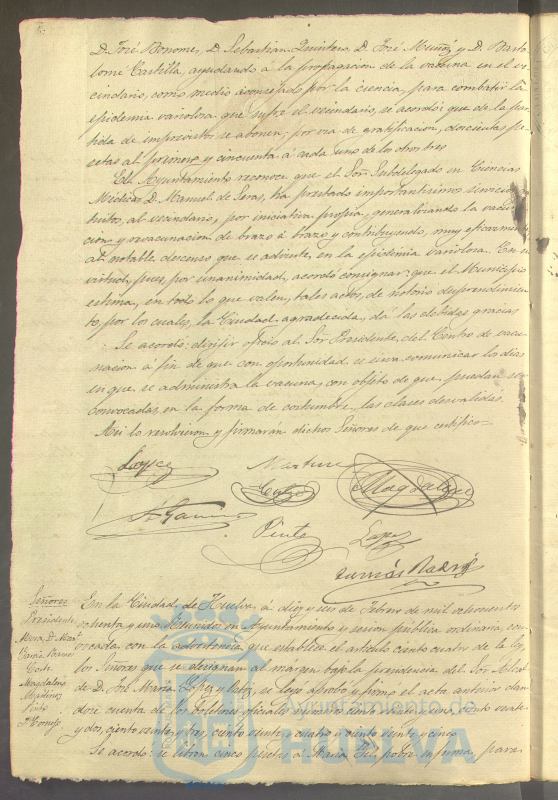 D. José Bonomes, D. Sebastian Quintero, D. José Muñoz y D. Barto
lomé Castilla, ayudando á la propagacion de la vacuna en el ve
cindario, como medio aconsejado por la ciencia, para combatir la
epidemia variolosa que sufre el vecindario, se acordó: que de la par
tida de imprevistos se abonen, por via de gratificacion, doscientas pe
setas al primero y cincuenta á cada uno de los otros tres
El Ayuntamiento reconoce que el Sor. Subdelegado en Ciencias
Médicas D. Manuel de Seras, ha prestado importantísimos servicios
tuitos, al vecindario, por iniciativa propia, generalizando la vacuna
cion y revacunacion de brazo á brazo y contribuyendo, muy eficazmente
al notable descenso que se advierte, en la epidemia variolosa. En su
virtud, pues, por unanimidad, acordó consignar: que el Municipio
estima, en todo lo que valen, tales actos, de notorio desprendimien
to, por los cuales, la Ciudad agradecida, dá las debidas gracias
Se acordó: dirigir oficio al Sor. Presidente del Centro de vacu
nacion á fin de que con oportunidad se sirva comunicar los dias
en que se administra la vacuna, con objeto de que puedan ser
convocadas, en la forma de costumbre, las clases desvalidas.
Asi lo resolvieron y firmarán dichos Señores de que certifico=
Lopez
Martinez
Cortés
Magdalena
Pinto
Lopez
Señores
Presidente
Garcia
Cortés
Magdalena
Martinez
Pinto
En la Ciudad de Huelva á diez y seis de Febrero de mil ochocientos
ochenta y uno: Reunidos en Ayuntamiento y sesion pública ordinaria, con
vocada con la advertencia que establece el artículo ciento cuatro de la ley,
los Señores que se designan al márgen bajo la presidencia del Sor. Alcalde
D. José Maria Lopez y se leyó aprobó y firmó el acta anterior dan
dose cuenta de los Boletines oficiales número ciento veinte y uno, ciento veinte
y dos, ciento veinte y tres, ciento veinte y cuatro y ciento veinte y cinco.
Se acordó: se libren cinco pesetas á Maria pobre enferma, para
Ayuntamiento de
HUELVA